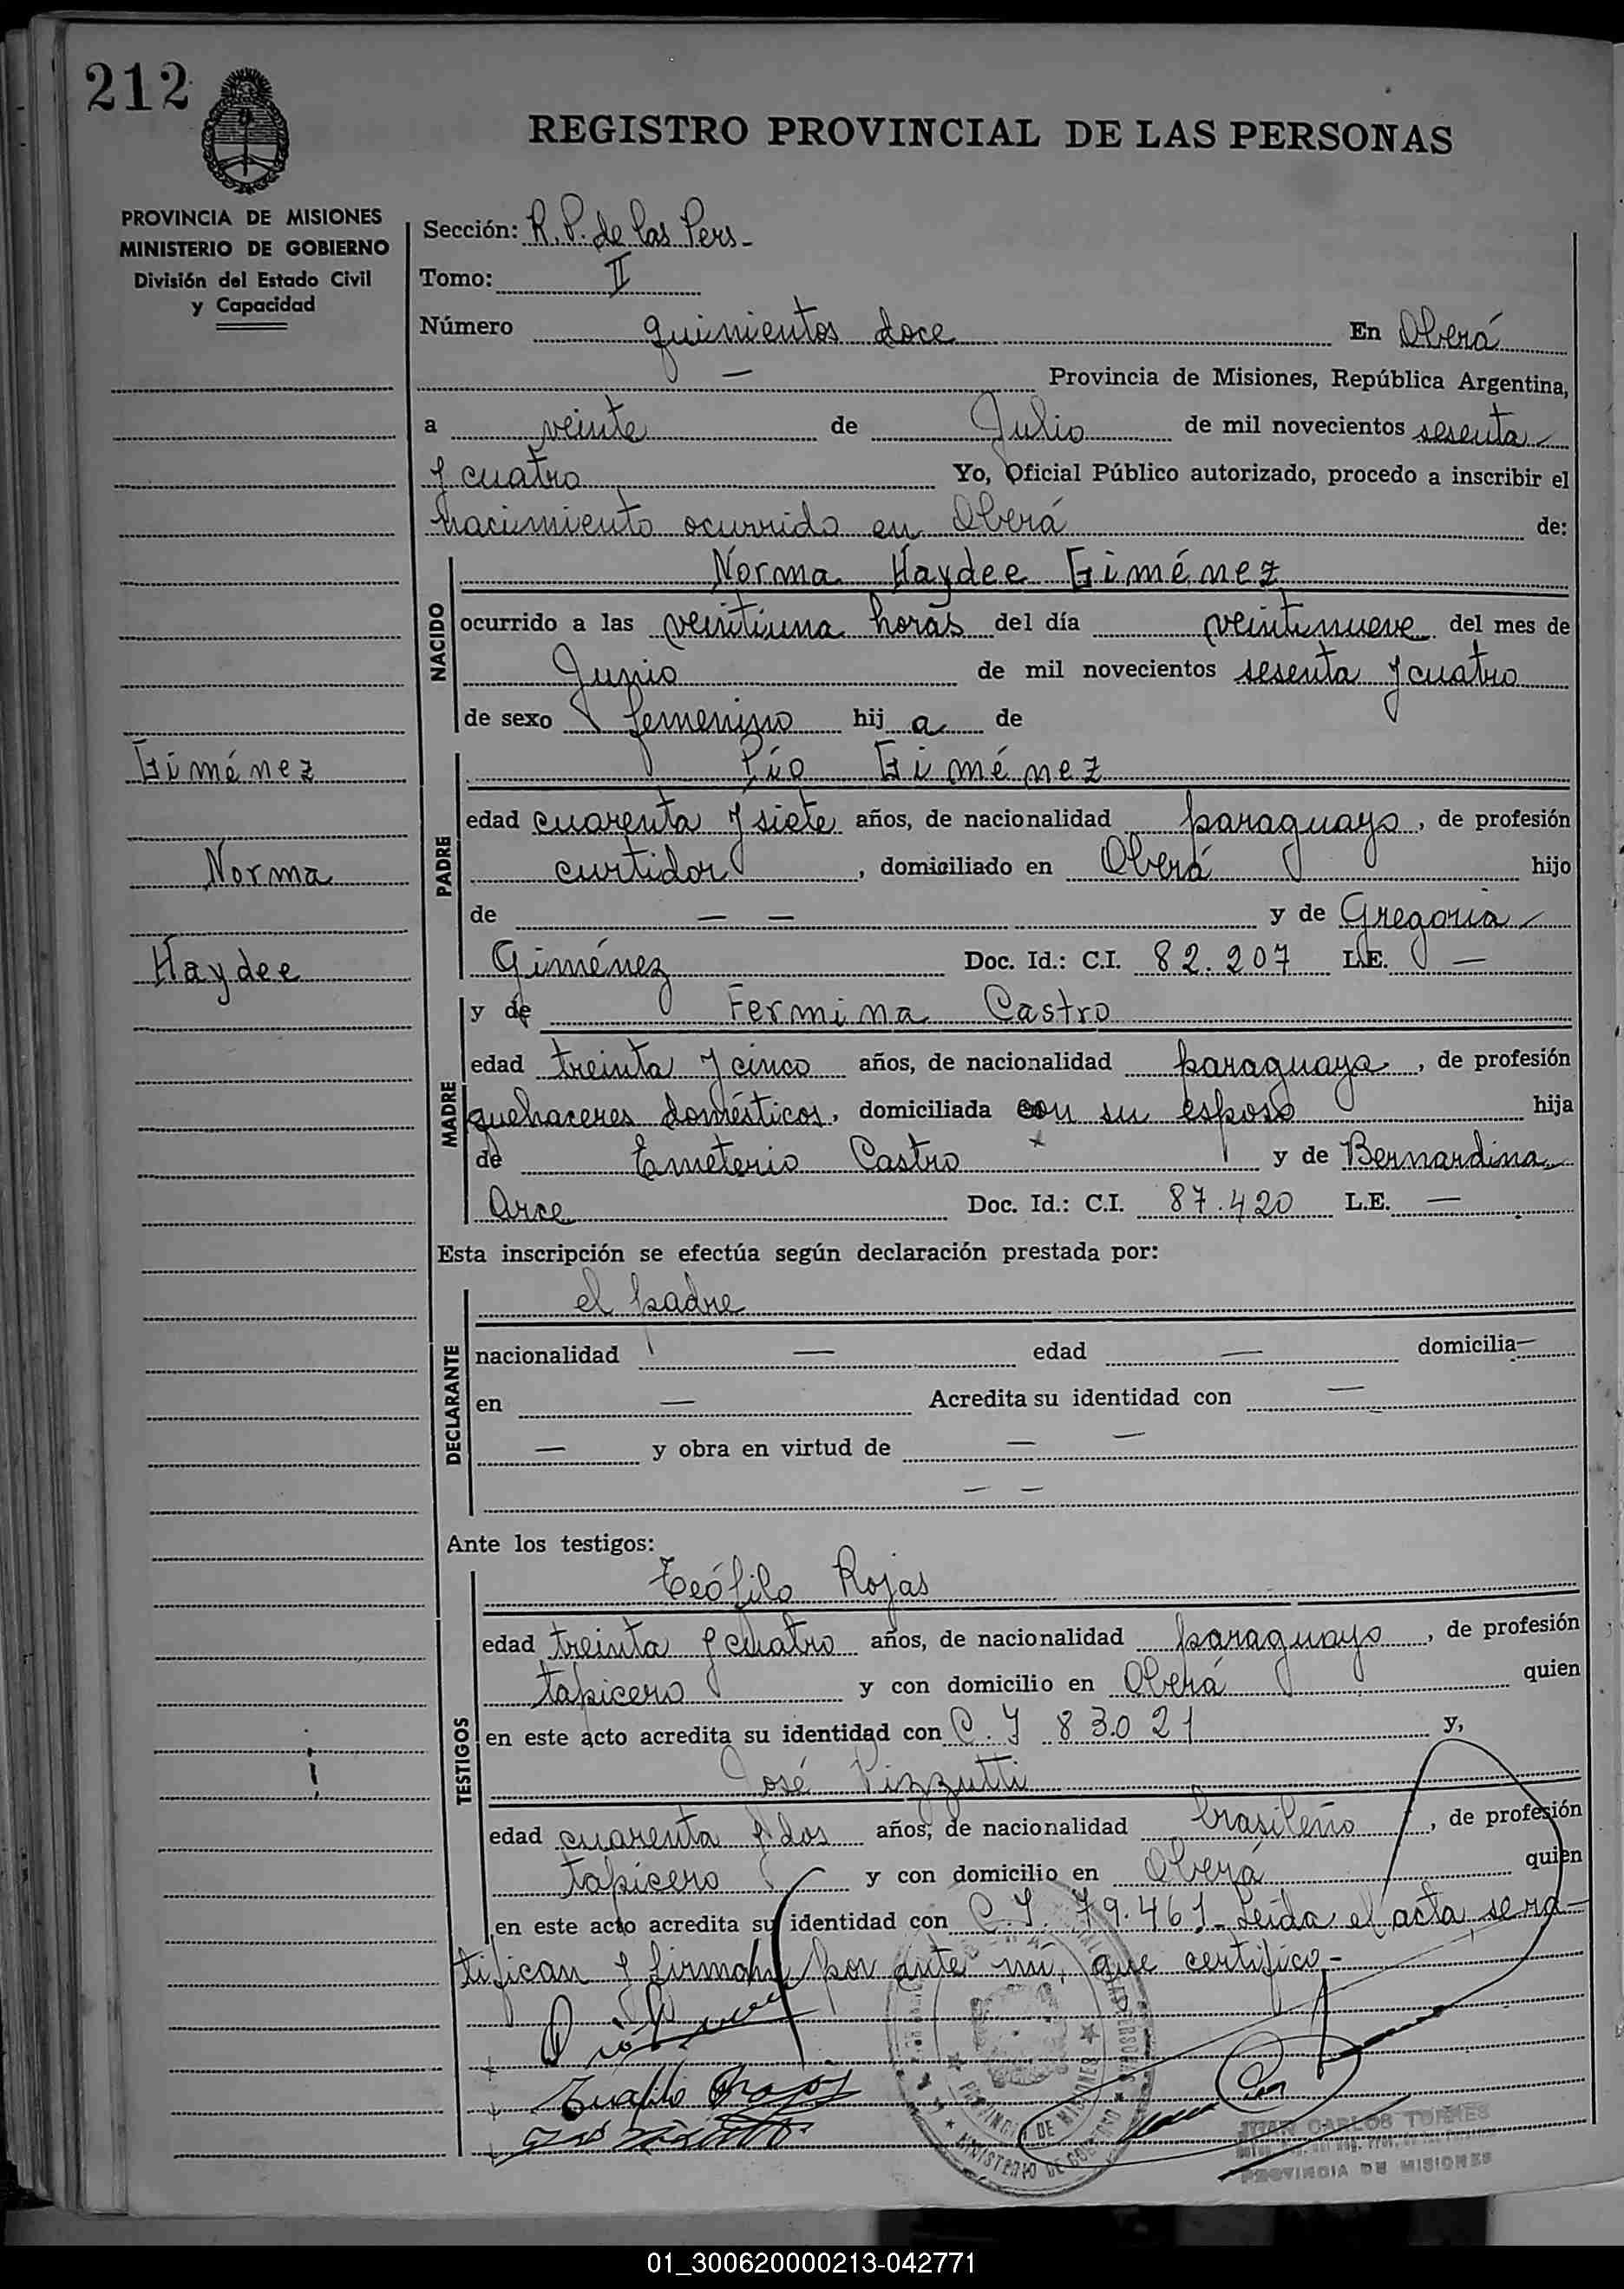 212
REGISTRO PROVINCIAL DE LAS PERSONAS
PROVINCIA DE MISIONES
MINISTERIO DE GOBIERNO
División del Estado Civil
y Capacidad
Sección: R. P. de las Pers-
Tomo: II
Número quinientos doce En Oberá
— Provincia de Misiones, República Argentina,
a veinte de Julio de mil novecientos sesenta
y cuatro Yo, Oficial Público autorizado, procedo a inscribir el
nacimiento ocurrido en Oberá de:
NACIDO
Norma Haydee Giménez
ocurrido a las veintiuna horas del día veintinueve del mes de
Junio de mil novecientos sesenta y cuatro
de sexo femenino hij a de
Giménez
Norma
Haydee
PADRE
Pío Giménez
edad cuarenta y siete años, de nacionalidad paraguayo, de profesión
curtidor, domiciliado en Oberá hijo
de — — y de Gregoria
Giménez Doc. Id.: C.I. 82.207 L.E. —
MADRE
y de Fermina Castro
edad treinta y cinco años, de nacionalidad paraguaya, de profesión
quehaceres domésticos, domiciliada con su esposo hija
de Emeterio Castro y de Bernardina
Arce Doc. Id.: C.I. 87.420 L.E. —
Esta inscripción se efectúa según declaración prestada por:
DECLARANTE
el padre
nacionalidad — edad — domicilia—
en — Acredita su identidad con —
— y obra en virtud de — —
— —
Ante los testigos:
TESTIGOS
Teófilo Rojas
edad treinta y cuatro años, de nacionalidad paraguayo, de profesión
tapicero y con domicilio en Oberá quien
en este acto acredita su identidad con C. I 83.021 y,
José Pizzutti
edad cuarenta y dos años, de nacionalidad brasileño, de profesión
tapicero y con domicilio en Oberá quien
en este acto acredita su identidad con C. I. 79.461- Leída el acta, se ra-
tifican y firman por ante mí, que certifico.-
Teofilo Rojas
MINISTERIO DE GOBIERNO
PROVINCIA DE MISIONES
JUAN CARLOS TORRES
PROVINCIA DE MISIONES
01_300620000213-042771